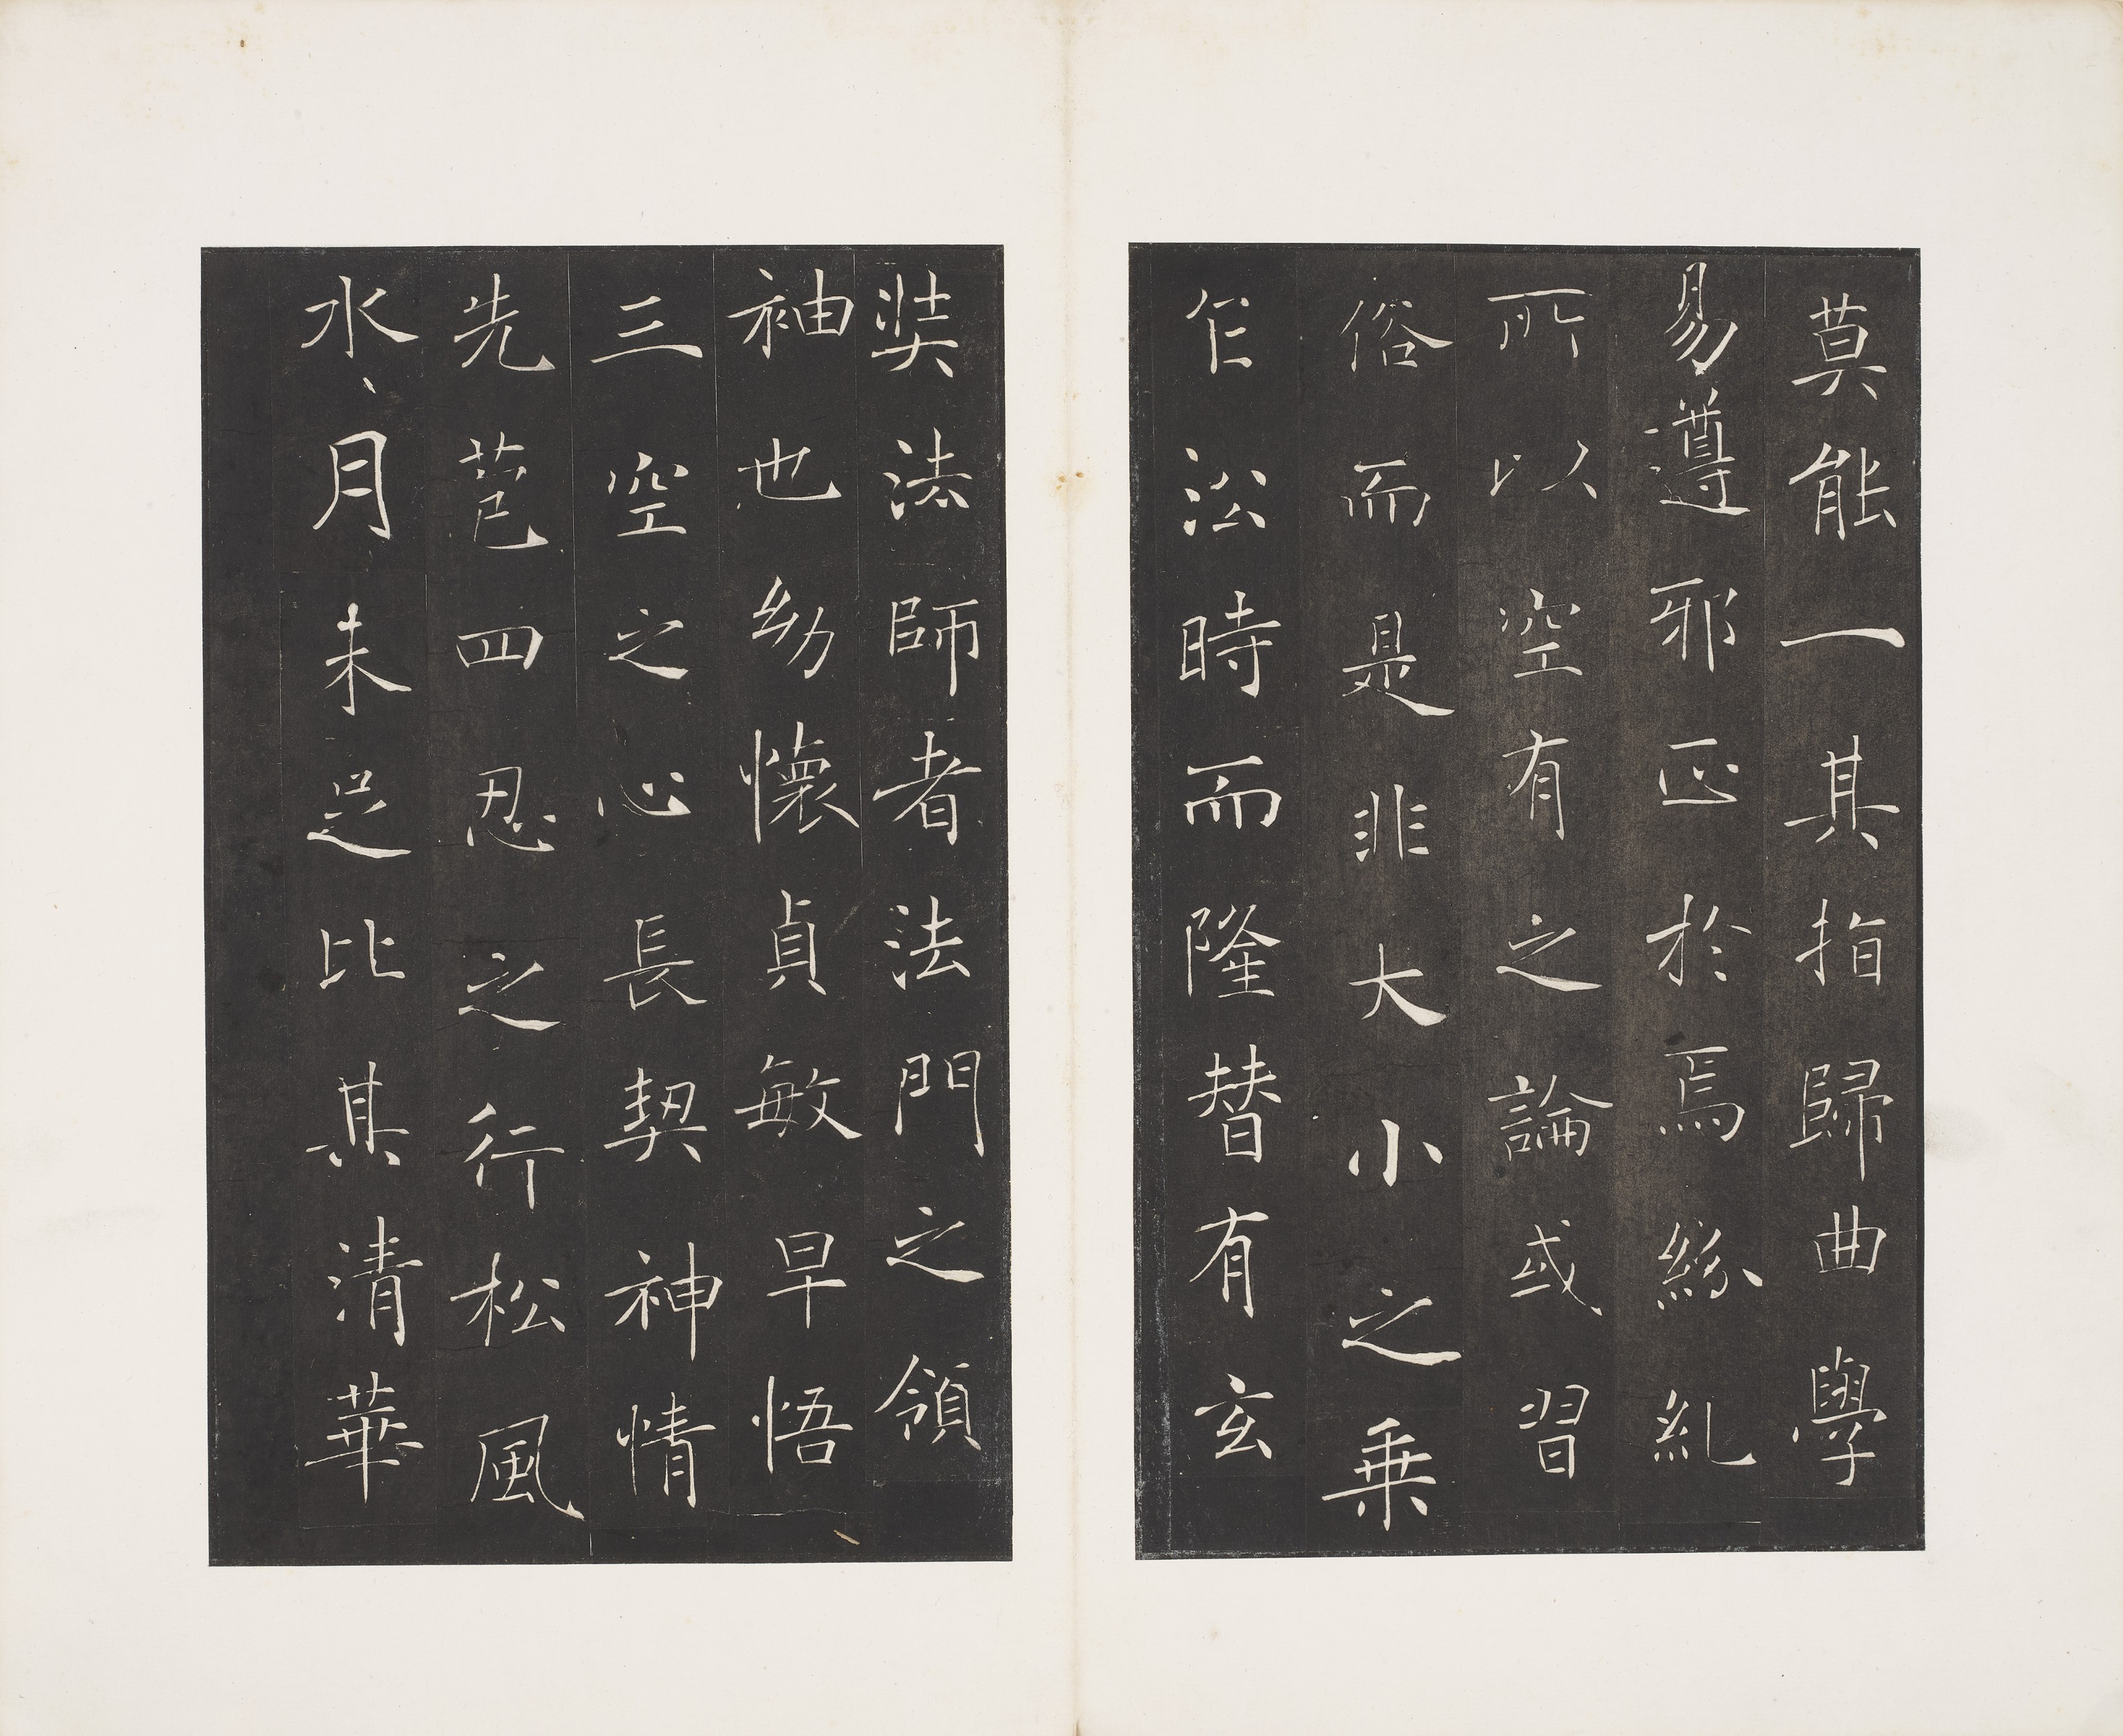 莫能一其指歸曲學
易遵邪正於焉紛糺
所以空有之論或習
俗而是非大小之乗
乍沿時而隆替有玄
奘法師者法門之領
袖也幼懷貞敏早悟
三空之心長契神情
先苞四忍之行松風
水月未足比其清華